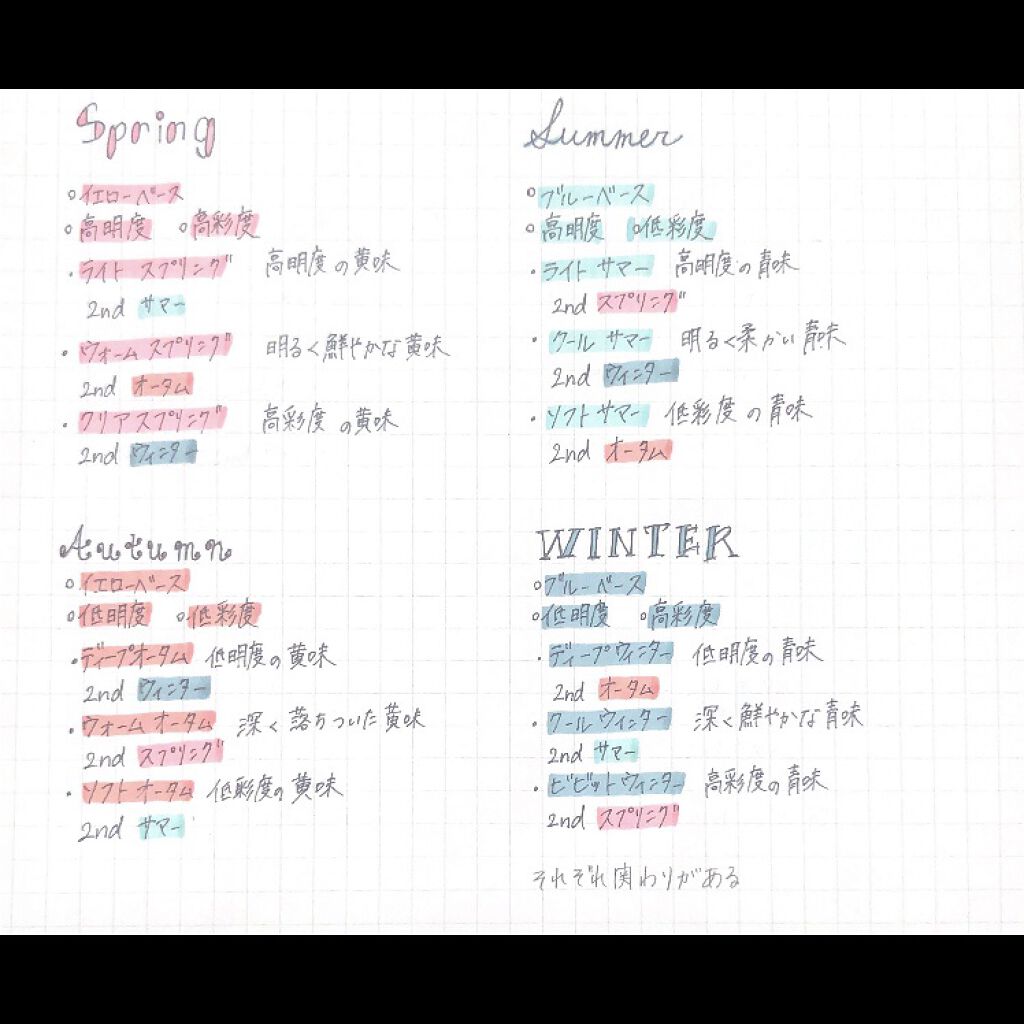 Spring
○イエローベース
○高明度 ○高彩度
・ライト スプリング 高明度の黄味
2nd サマー
・ウォーム スプリング 明るく鮮やかな黄味
2nd オータム
・クリアスプリング 高彩度の黄味
2nd ウィンター
Summer
○ブルーベース
○高明度 ○低彩度
・ライト サマー 高明度の青味
2nd スプリング
・クール サマー 明るく柔かい青味
2nd ウィンター
・ソフト サマー 低彩度の青味
2nd オータム
Autumn
○イエローベース
○低明度 ○低彩度
・ディープオータム 低明度の黄味
2nd ウィンター
・ウォーム オータム 深く落ちついた黄味
2nd スプリング
・ソフト オータム 低彩度の黄味
2nd サマー
WINTER
○ブルーベース
○低明度 ○高彩度
・ディープウィンター 低明度の青味
2nd オータム
・クールウィンター 深く鮮やかな青味
2nd サマー
・ビビットウィンター 高彩度の青味
2nd スプリング
それぞれ関わりがある